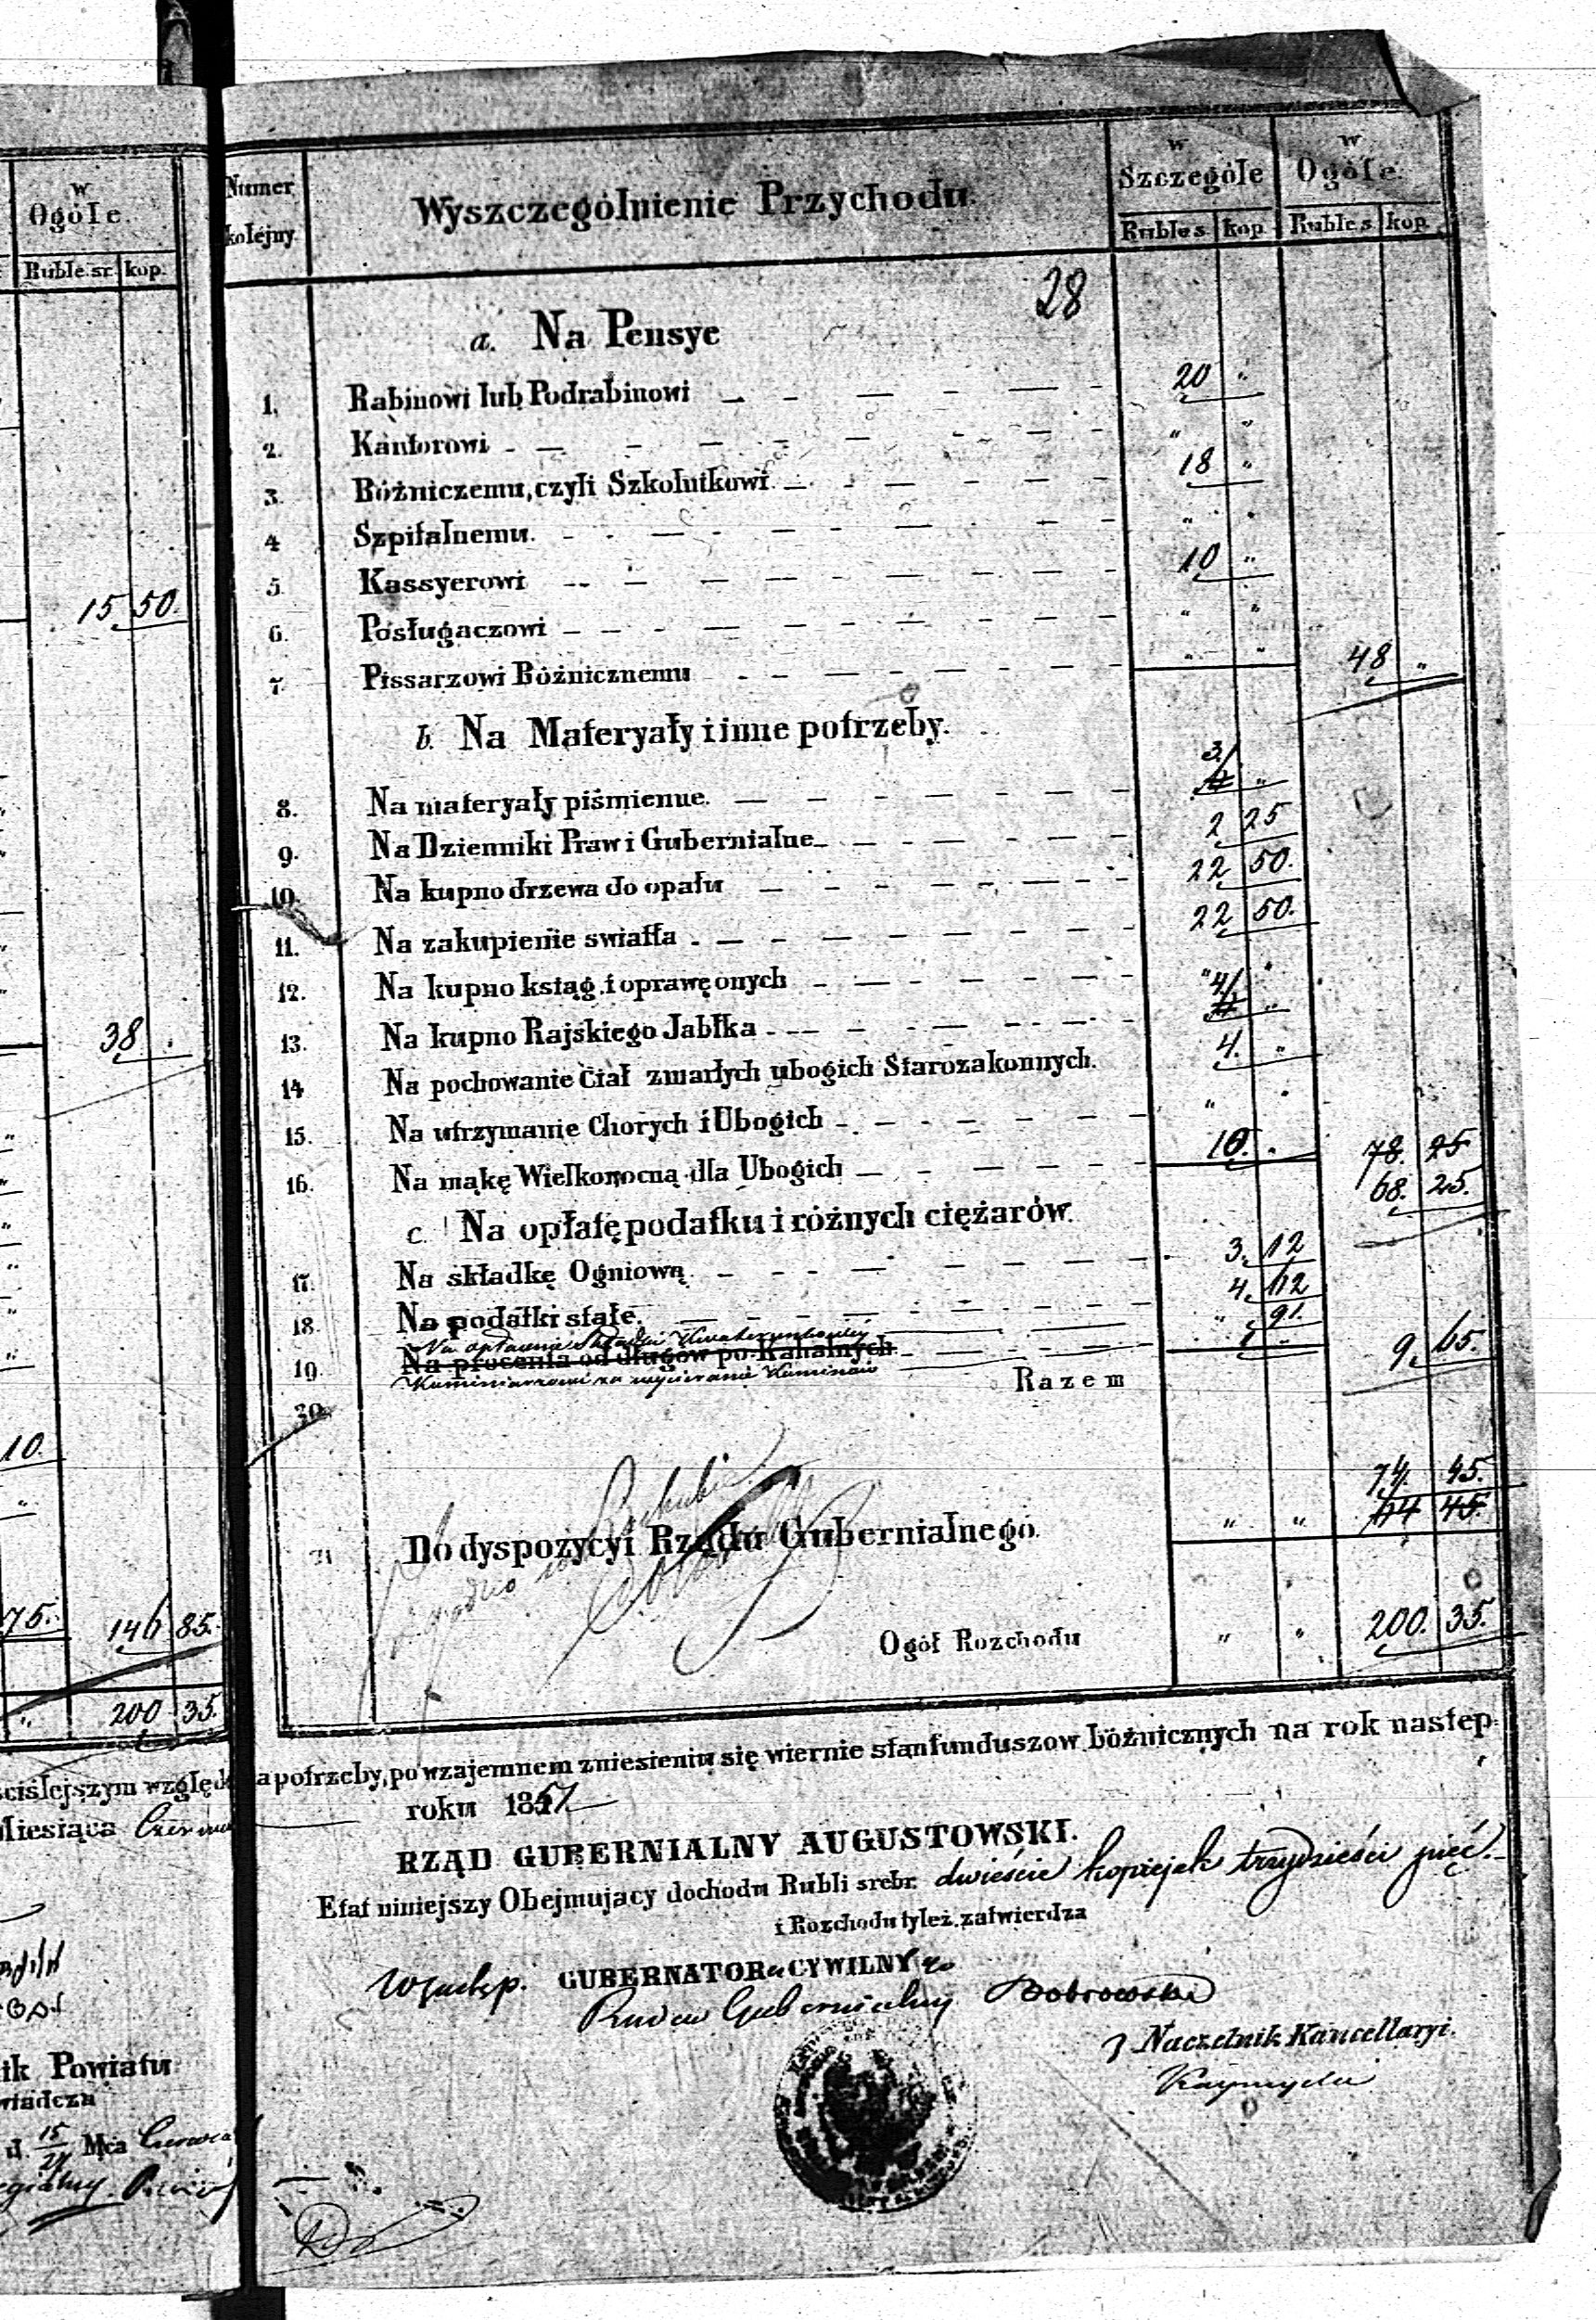 w
Ogóle.
Ruble sr. kop.
15 50.
38
10.
75. 146 85.
200 35.
Miesiąca
ik Powiatu
wiadcza
d. 15 Mca Czerwca
Numer kolejny
Wyszczególnienie Przychodu.
w Szczególe
w Ogóle.
Ruble s. kop. Ruble s. kop.
28
a. Na Pensye
1. Rabinowi lub Podrabinowi 20 "
2. Kantorowi " "
3. Bóżniczemu, czyli Szkolutkowi 18 "
4 Szpitalnemu. " "
5. Kassyerowi 10 "
6. Posługaczowi " "
7. Pissarzowi Bóżnicznemu " " 48 "
b. Na Materyały i inne potrzeby.
8. Na materyały piśmienne. 3. "
9. Na Dzienniki Praw i Gubernialne 2 25
10. Na kupno drzewa do opału 22 50.
11. Na zakupienie swiatła 22 50.
12. Na kupno ksiąg i oprawę onych " "
13. Na kupno Rajskiego Jabłka 4 "
14 Na pochowanie Ciał zmarłych ubogich Starozakonnych. 4. "
15. Na utrzymanie Chorych i Ubogich " "
16. Na mąkę Wielkonocną dla Ubogich 10. " 78. 25
68. 25.
c. Na opłatę podatku i różnych ciężarów.
17. Na składkę Ogniową 3. 12
18. Na podatki stałe. 4. 12
Na opłacenie Składki Kwaterunkowej " 91.
19. Na procenta od długów po-Kahalnych
Kominiarzowi za wycieranie Kominów 1 " 9. 65.
20. Razem
74. 45.
21 Do dyspozycyi Rządu Gubernialnego. " " 44 45.
Ogół Rozchodu " " 200. 35.
ściślejszym względ
a potrzeby, po wzajemnem zniesieniu się wiernie stan funduszow bóżnicznych na rok następ:
roku 1851
RZĄD GUBERNIALNY AUGUSTOWSKI.
Etat niniejszy Obejmujacy dochodu Rubli srebr. dwieście kopiejek trzydzieści pięć.
i Rozchodu tyleż zatwierdza
w zastęp. GUBERNATORa CYWILNYgo
Radca Gubernialny Dobrowolski
Naczelnik Kancellaryi.